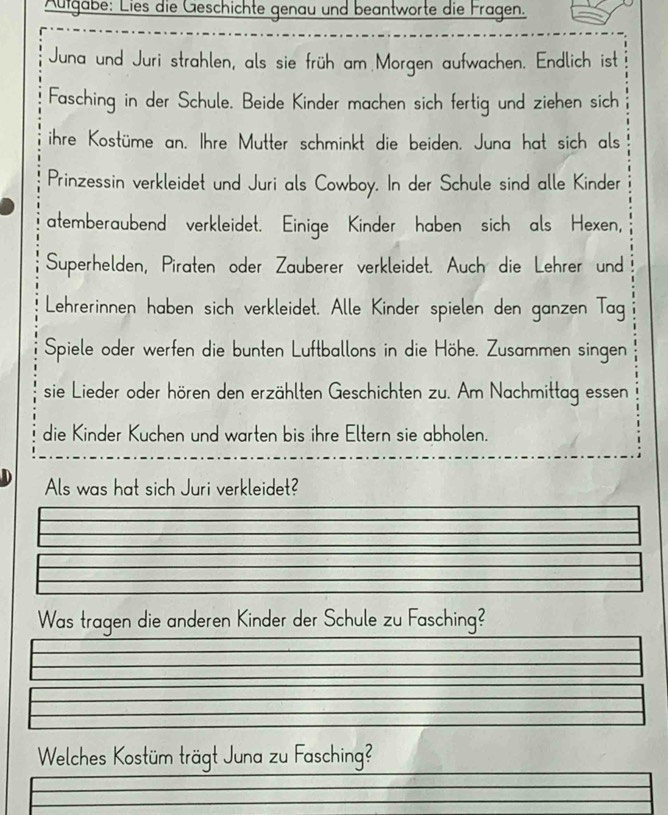 Aufgabe: Lies die Geschichte genau und beantworte die Fragen.
Juna und Juri strahlen, als sie früh am Morgen aufwachen. Endlich ist
Fasching in der Schule. Beide Kinder machen sich fertig und ziehen sich
ihre Kostüme an. Ihre Mutter schminkt die beiden. Juna hat sich als
Prinzessin verkleidet und Juri als Cowboy. In der Schule sind alle Kinder
atemberaubend verkleidet. Einige Kinder haben sich als Hexen,
Superhelden, Piraten oder Zauberer verkleidet. Auch die Lehrer und
Lehrerinnen haben sich verkleidet. Alle Kinder spielen den ganzen Tag
Spiele oder werfen die bunten Luftballons in die Höhe. Zusammen singen
sie Lieder oder hören den erzählten Geschichten zu. Am Nachmittag essen
die Kinder Kuchen und warten bis ihre Eltern sie abholen.
Als was hat sich Juri verkleidet?
Was tragen die anderen Kinder der Schule zu Fasching?
Welches Kostüm trägt Juna zu Fasching?